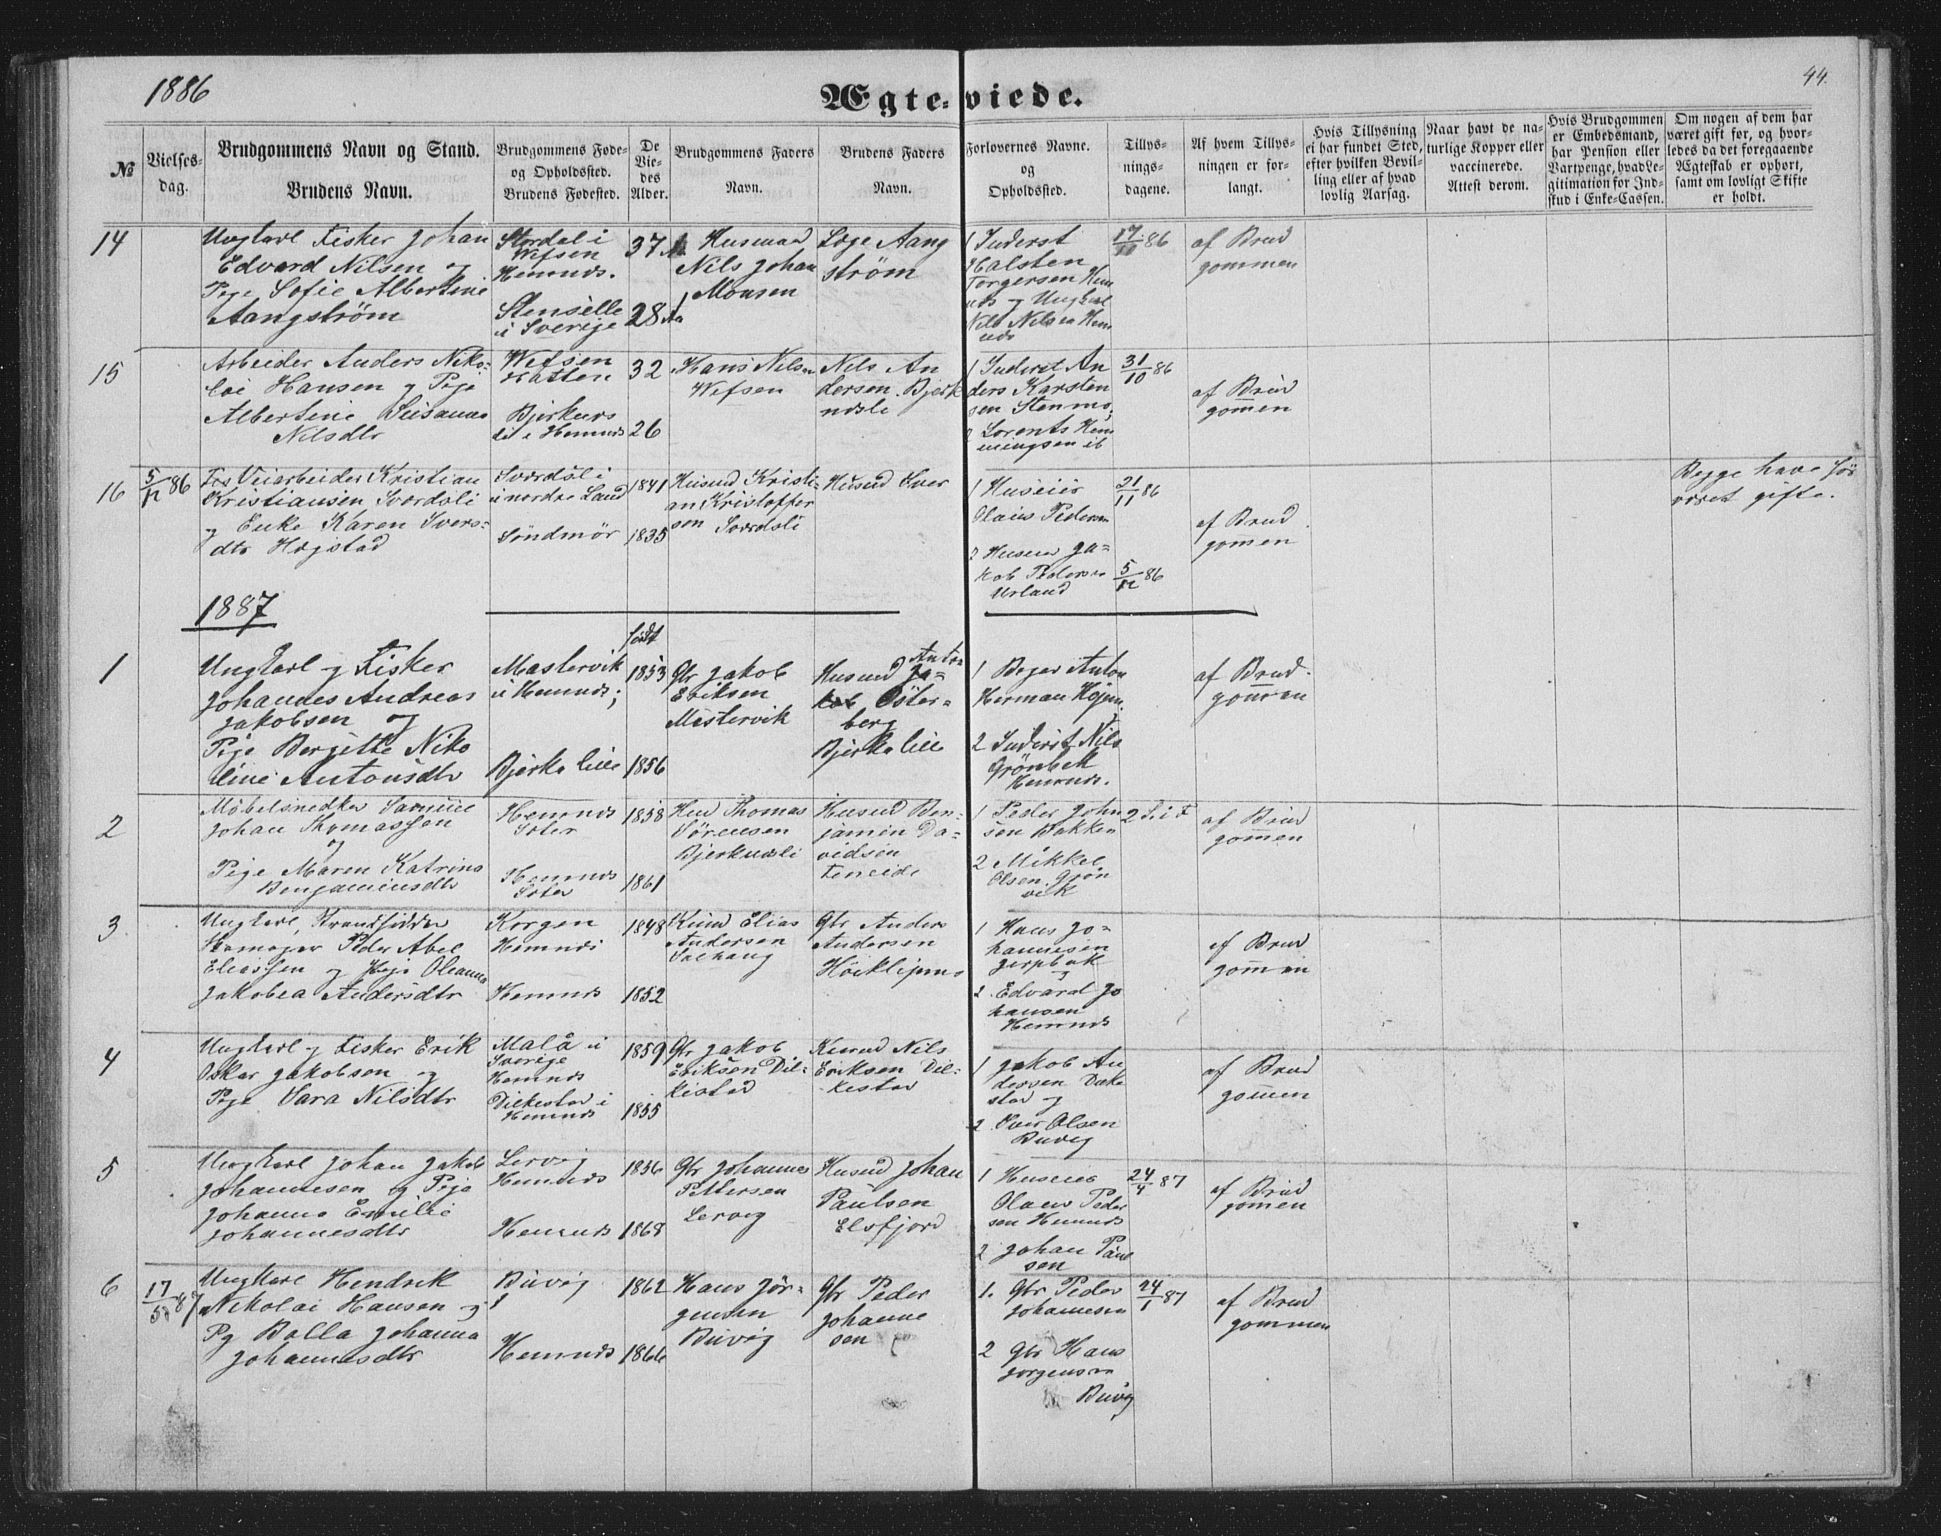 1886
Ægteviede.
44.
№
Vielses-
dag.
Brudgommens Navn og Stand.
Brudens Navn.
Brudgommens Føde-
og Opholdssted.
Brudens Fødested.
De
Vie-
des
Alder.
Brudgommens Faders
Navn.
Brudens Faders
Navn.
Forlovernes Navne.
og
Opholdssted.
Tillys-
nings-
dagene.
Af hvem Tillys-
ningen er for-
langt.
Hvis Tillysning
ei har fundet Sted,
efter hvilken Bevil-
ling eller af hvad
lovlig Aarsag.
Naar havt de na-
turlige Kopper eller
vaccinerede.
Attest derom.
Hvis Brudgommen
er Embedsmand,
har Pension eller
Vartpenge, hvad Le-
gitimation for Ind-
skud i Enke-Cassen.
Om nogen af dem har
været gift før, og hvor-
ledes da det foregaaende
Ægteskab er ophørt,
samt om lovligt Skifte
er holdt.
14
Ungkarl Fisker Johan
Edvard Nilsen og
Pige Sofie Albertine
Aangström
Stordal i
Vefsen
Hemnds.
Stensele
i Sverige
37
28 Aa
Husmand
Nils Johan
Monsen
Loge Aang
ström
1 Inderst
Halsten
Torgersen Hem
nds og Ungkarl
Nils Nilsen Hem
nds
17/10 86
af Brud
gommen
15
Arbeider Anders Niko-
lai Hansen og Pige
Albertine Susanne
Nilsdtr
Wefsen
Hatten
Bjerknes
li i Hemnds
32
26
Hans Nilsen
Wefsen
Nils An
dersen Bjerk
ndsli
1 Inderst An
ders Karsten
sen Stenmo,
2 Lorents Hem
mingsen ib
31/10 86
af Brud
gomen
16
5/12 86
Veiarbeider Kristian
Kristiansen Sværdsli
og Enke Karen Ivers-
dtr Hægstad
Sværdsli
i nordre Land
Söndmör
1841
1835
Husmd Kristi-
an Kristoffer
sen Sværdsli
Husmd Iver
1 Huseier
Olaus Pedersen
2 Huseier Ja-
kob Pedersen
Urland
21/11 86
5/12 86
af Brud
gomen
Begge have før
været gifte.
1887
født
1
Ungkarl og Fisker
Johannes Andreas
Jakobsen og
Pige Bergitte Niko
line Antonsdtr
Mastervik
i Hemnds;
Bjerka lille
1853
1856
Gbr Jakob
Eriksen
Mastervik
Husmd Anton
Öster-
berg
Bjerka lille
1 Anton
Herman Hojem.
2 Inderst Nils
Grönbek
Hemnds.
af Brud-
gomen
2
Møbelsnedker
Johan Thomassen
og
Pige Maren Katrina
Benjaminsdtr
Hemnds
Hemnds
1858
1861
Thomas
Sörensen
Bjerkndsli
Husmd Ben-
jamin Da-
vidsen
1 Peder John
sen Bakken
2 Mikkel
Olsen Grön
vik
af Brud
gomen
3
Ungkarl, Strandsidder
Peder Abel
Eliassen og Pige Oleanna
Jakobea Andersdtr
Korgen
Hemnds
Hemnds
1848
1852
Elias
Andersen
Gbr Anders
Andersen
1 Hans Jo-
hannesen
og
2 Edvard Jo
hansen
Hemnds
af Brud
gommen
4
Ungkarl og Fisker Erik
Oskar Jakobsen og
Pige Sara Nilsdtr
Malå i
Sverige
Hemnds
Dilkestad i
Hemnds
1859
1855
Gbr Jakob
Eriksen Dil-
kestad
Nils
Eriksen Dil-
kestad
1 Jakob An
dersen
stad og
2 Iver Olsen
Buvig
af Brud
gommen
5
Ungkarl Johan Jakob
Johannesen og Pige
Johanna Emilie
Johannesdtr
Lervig
Hemnds
Hemnds
1856
1868
Gbr Johannes
Pettersen
Lervig
Husmd Johan
Paulsen
Elsfjord
1 Huseier
Olaus Peder
sen Hemnds
2 Johan Paul
sen
24/4 87
af Brud
gomen
6
17/5 87
Ungkarl Hendrik
Nikolai Hansen og
Pg Balla Johanna
Johannesdtr
Buvig
Hemnds
1862
1866
Hans Jör-
gensen
Buvig
Gbr Peder
Johanne
sen
1. Gbr Peder
Johannesen
2 Gbr Hans
Jorgensen
Buvig
24/1 87
af Brud
gommen